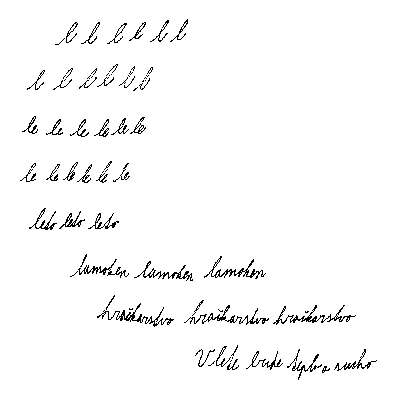 l l l l l l
l l l l l l
le le le le le le
le le le le le le
leto leto leto
lamohen lamohen lamohen
hračkarstvo hračkarstvo hračkarstvo
V lete bude teplo a sucho